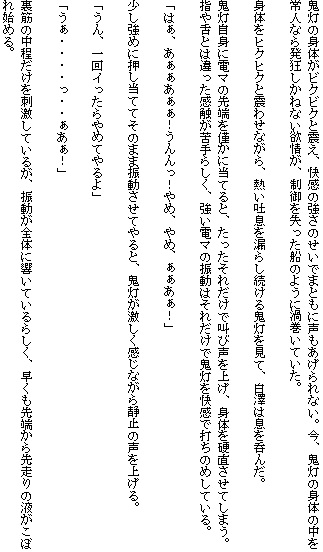 鬼灯の身体がビクビクと震え、快感の強さのせいでまともに声もあげられない。今、鬼灯の身体の中を
常人なら発狂しかねない欲情が、制御を失った船のように渦巻いていた。
身体をヒクヒクと震わせながら、熱い吐息を漏らし続ける鬼灯を見て、白澤は息を呑んだ。
鬼灯自身に電マの先端を僅かに当てると、たったそれだけで叫び声を上げ、身体を硬直させてしまう。
指や舌とは違った感触が苦手らしく、強い電マの振動はそれだけで鬼灯を快感で打ちのめしている。
「はぁ、あぁぁあぁぁ！うんんっ！やめ、やめ、ぁぁあぁ！」
少し強めに押し当ててそのまま振動させてやると、鬼灯が激しく感じながら静止の声を上げる。
「うん、一回イったらやめてやるよ」
「うぁ・・・・っ・・ぁあぁ！」
裏筋の中程だけを刺激しているが、振動が全体に響いているらしく、早くも先端から先走りの液がこぼ
れ始める。